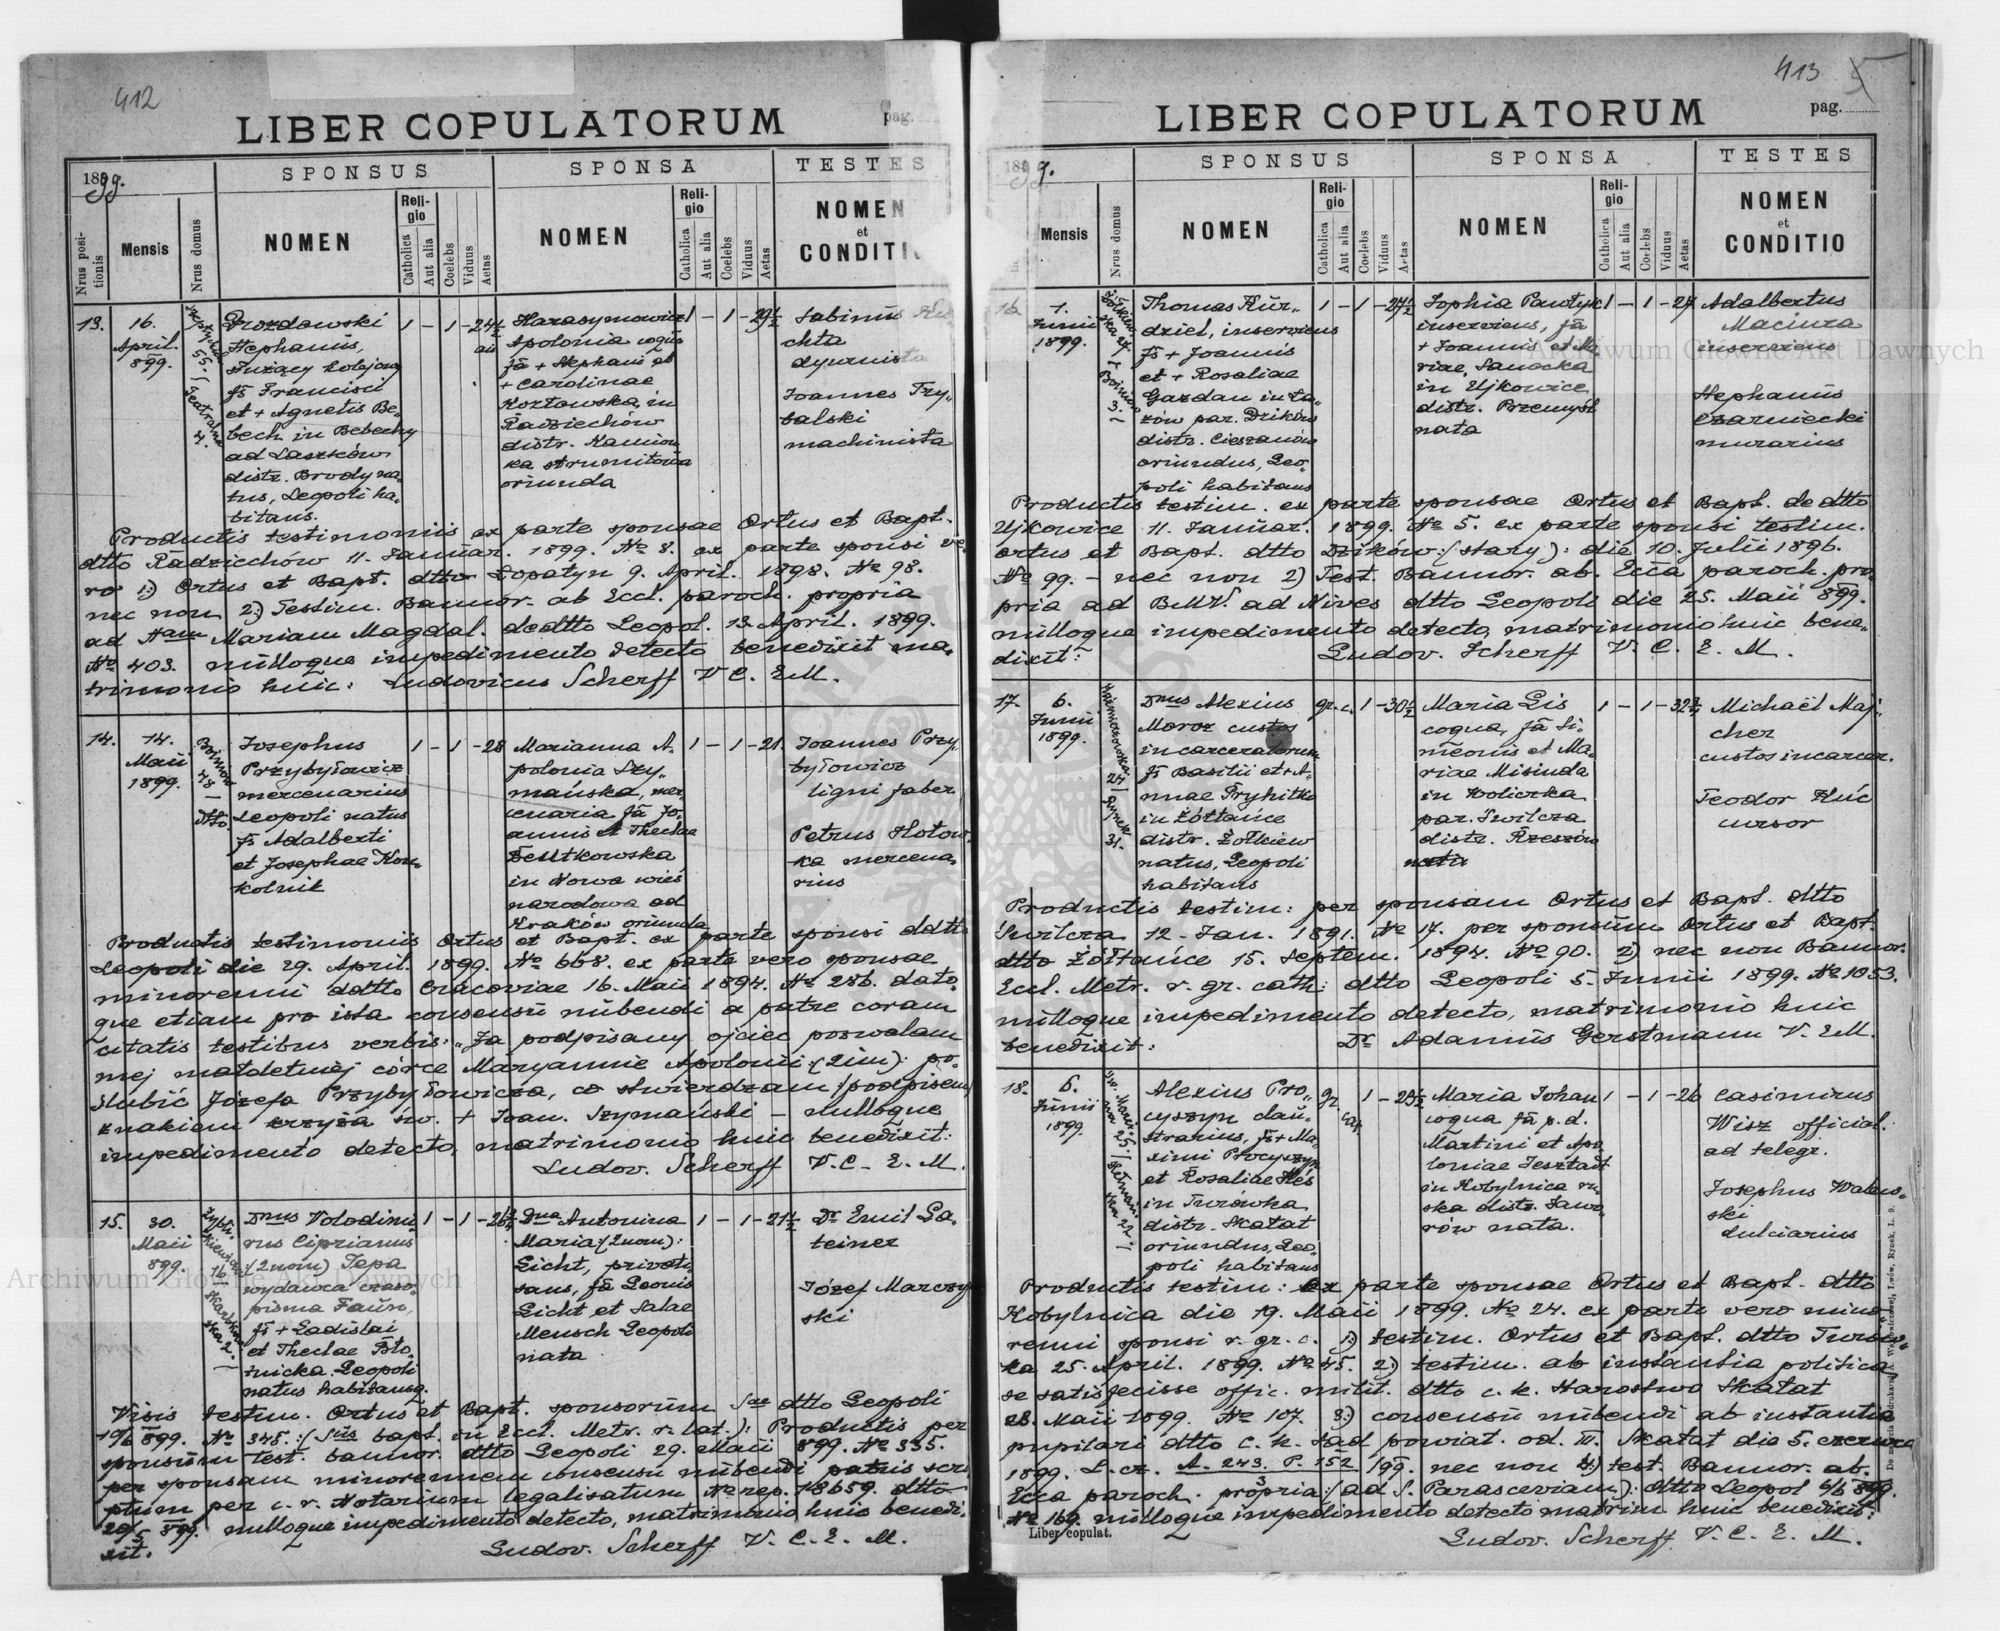 412
LIBER COPULATORUM
pag.
1899.
SPONSUS
SPONSA
TESTES
Nrus positionis
Mensis
Nrus domus
NOMEN
Religio
Catholica
Aut alia
Coelebs
Viduus
Aetas
NOMEN
Religio
Catholica
Aut alia
Coelebs
Viduus
Aetas
NOMEN
et
CONDITIO
13.
16.
April.
899.
55.
Teatralna
4.
Drozdowski
Stephanus,
służący kolejowy
fs Francisci
et + Agnetis Be-
bech in Bebechy
ad Laszków
distr. Brody na-
tus, Leopoli ha-
bitans.
1 – 1 – 24 1/2
Harasymowicz
Apolonia coqua
fa + Stephani et
+ Carolinae
Kozłowska, in
Radziechów
distr. Kamion-
ka strumiłowa
oriunda
1 – 1 – 29 1/2
Sabinus
chta
dyurnista
Joannes Try-
balski
machinista
Productis testimoniis ex parte sponsae Ortus et Bapt.
dtto Radziechów 11. Januar. 1899. No 8. ex parte sponsi ve-
ro 1) Ortus et Bapt. dtto Łopatyn 9. April. 1898. No 98.
nec non 2) Testim. Bannor. ab Eccl. paroch. propria
ad Stam Mariam Magdal. de dtto Leopol. 13. April. 1899.
No 403. nulloque impedimento detecto benedixit ma-
trimonio huic: Ludovicus Scherff V C. E M.
14.
14.
Maii
1899.
Boimów
48
dtto.
Josephus
Przybyłowicz
mercenarius
Leopoli natus
fs Adalberti
et Josephae Kon-
kolnik
1 – 1 – 28
Marianna A-
polonia Szy-
mańska, mer-
cenaria fa Jo-
annis et Theclae
in Nowa wieś
narodowa ad
Kraków oriunda
1 – 1 – 21.
Joannes Przy-
byłowicz
ligni faber
Petrus Hotow-
ka mercena-
rius
Productis testimoniis Ortus et Bapt. ex parte sponsi ddtto
Leopoli die 29. April. 1899. No 668. ex parte vero sponsae
minorenni ddtto Cracoviae 16. Maii 1894. No 286. dato-
que etiam pro ista consensu nubendi a patre coram
citatis testibus verbis: „Ja podpisany ojciec pozwalam
mej małoletniej córce Maryannie Apolonii (2im): po-
ślubić Józefa Przybyłowicza, co stwierdzam podpisem
znakiem krzyża św. + Joan. Szymański – nulloque
impedimento detecto, matrimonio huic benedixit:
Ludov. Scherff V. C. E. M.
15.
30.
Maii
899.
16
2.
Dnus Volodimi-
rus Ciprianus
(2nom) Tepa
wydawca czaso-
pisma Faun,
fs + Ladislai
et Theclae Bło-
tnicka Leopoli
natus habitansq.
1 – 1 – 26 3/4
Dna Antonina
Maria (2nom):
Licht, privati-
sans, fa Leonis
Licht et Salae
Mensch Leopoli
nata
1 – 1 – 21 1/2
Dr Emil La-
teiner
Józef Marczy-
ski
Visis testim. Ortus et Bapt. sponsorum dtto Leopoli
19/6 899. No 345. bapt. in Eccl. Metr. r. lat.): Productis per
sponsum test. bannor. dtto Leopoli 29. Maii 899. No 335.
per sponsam minorennem consensu nubendi patris scri-
ptum per c. r. Notarium legalisatum No rep. 18659. dtto
29/5 899. nulloque impedimento detecto, matrimonio huic benedi-
xit.
Ludov. Scherff V. C. E. M.
413
LIBER COPULATORUM
pag.
1899.
SPONSUS
SPONSA
TESTES
Mensis
Nrus domus
NOMEN
Religio
Catholica
Aut alia
Coelebs
Viduus
Aetas
NOMEN
Religio
Catholica
Aut alia
Coelebs
Viduus
Aetas
NOMEN
et
CONDITIO
16.
1.
Junii
1899.
Boimów
3.
Thomas Kur-
dziel, inserviens
fs + Joannis
et + Rosaliae
Gazdan in Ła-
zów par. Dzików
distr. Cieszanów
oriundus, Leo-
poli habitans
1 – 1 – 27 1/2
Sophia Pawłyk
inserviens, fa
+ Joannis et Ma-
riae, Sanocka
in Ujkowice
distr. Przemyśl
nata
1 – 1 – 27
Adalbertus
Maciura
inserviens
Stephanus
Czarniecki
murarius
Productis testim. ex parte sponsae Ortus et Bapt. de dtto
Ujkowice 11. Januar. 1899. No 5. ex parte sponsi testim.
ortus et Bapt. dtto Dzików (stary): die 10. Julii 1896.
No 99. – nec non 2) Test. Bannor. ab. Ecca paroch. pro-
pria ad B.M.V. ad Nives dtto Leopoli die 25. Maii 899.
nulloque impedimento detecto, matrimonio huic bene-
dixit: Ludov. Scherff V. C. E. M.
17.
6.
Junii
1899.
24
rynek
31.
Dnus Alexius
Moroz custos
in carceratorum
fs Basilii et + A-
nnae Fryhitko
in Żółtańce
distr. Żółkiew
natus, Leopoli
habitans
gr. c. 1 – 30 1/2
Maria Lis
coqua, fa Si-
meonis et Ma-
riae Misiuda
in Woliczka
par. Świlcza
distr. Rzeszów
nata
1 – 1 – 32 3/4
Michaël Maj-
cher
custos incarcer.
Teodor Huć
cursor
Productis testim: per sponsam Ortus et Bapt. dtto
Świlcza 12. Jan. 1891. No 17. per sponsum Ortus et Bapt.
dtto Żółtańce 15. Septem. 1894. No 90. 2) nec non Bannor.
Eccl. Metr. r. gr. cath: dtto Leopoli 5. Junii 1899. No 1053.
nulloque impedimento detecto, matrimonio huic
benedixit: Dr Adamus Gerstmann V. E M.
18.
6.
Junii
1899.
25.
22.
Alexius Pro-
cyszyn clau-
strarius, fs + Ma-
ximi Procyszyn
et Rosaliae Hes
in Turówka
distr. Skałat
oriundus, Leo-
poli habitans
gr. cat. 1 – 23 1/2
Maria Johan
coqua fa p. d.
Martini et Apo-
loniae Tesztadt
in Kobylnica ru-
ska distr. Jawo-
rów nata.
1 – 1 – 26
Casimirus
Wisz official.
ad telegr.
Josephus Walew-
ski
dulciarius
Productis testim: ex parte sponsae Ortus et Bapt. dtto
Kobylnica die 19. Maii 1899. No 24. ex parte vero mino-
renni sponsi r. gr. c. 1) testim. Ortus et Bapt. dtto Turów-
ka 25. April. 1899. No 45. 2) testim. ab instantia politica
se satisfecisse offic. milit. dtto c. k. Starostwo Skałat
28. Maii 1899. No 107. 3) consensu nubendi ab instantia
pupilari dtto c. k. Sąd powiat. od. III. Skałat die 5. czerwca
1899. L. cz. A. 243. P. 152/99. nec non 4) test. Bannor. ab.
3
Ecca paroch. propria (ad S. Parasceviam): dtto Leopol 6/6 899.
No 169. nulloque impedimento detecto matrim huic benedixit:
Liber copulat.
Ludov. Scherff V. C. E. M.
Archiwum Główne Akt Dawnych
Archiwum Główne Akt Dawnych